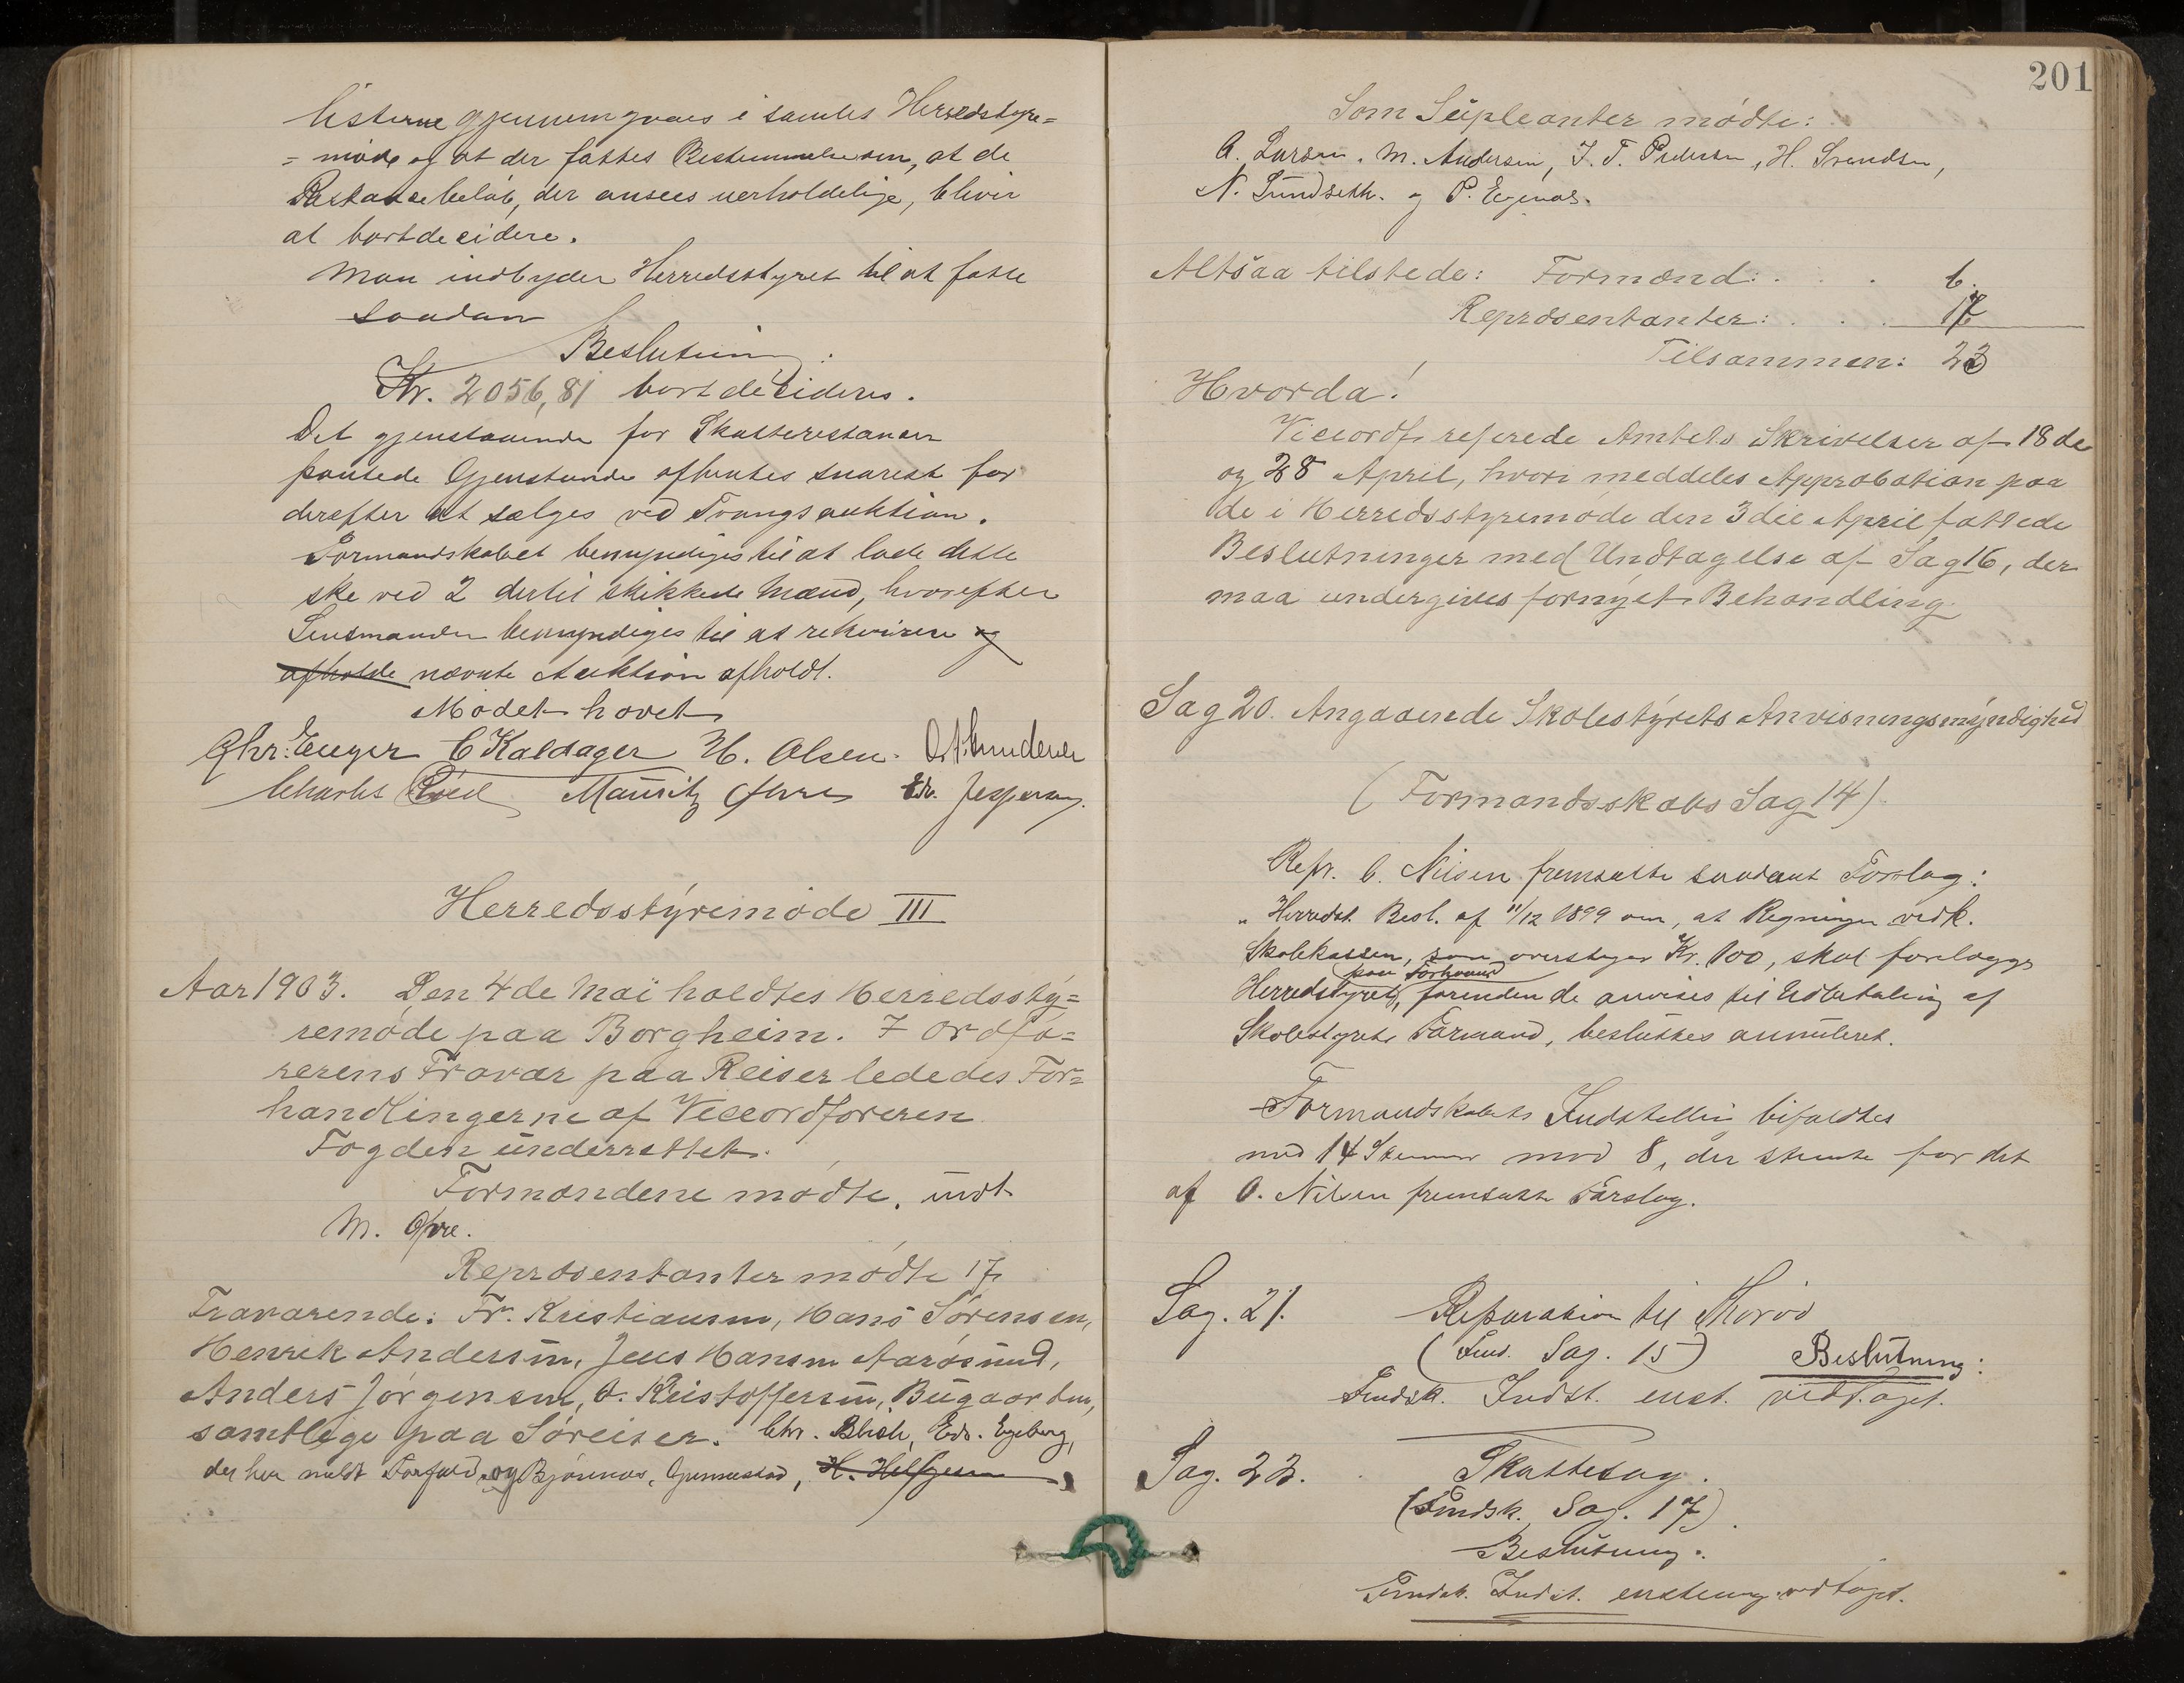 listerne gjennemgaaes i samles Herredstyre=
= möde og at der fattes Bestemmelse om, at de
Restancebelöb, der ansees uerholdelige, bliver
at bortdecidere.
Man indbyder Herredsstyret til at fatte
saadan
Beslutning:
Kr. 2056,81 bortdecideres.
Det gjenstaaende for Skatterestancer
pantede Gjenstande afhentes snarest for
derefter at sælges ved Tvangsauktion.
Formandskabet bemyndiges til at lade dette
ske ved 2 dertil skikkede Mænd, hvorefter
Lensmanden bemyndiges til at rekvirere og
afholde nævnte Auktion afholdt.
Mödet hævet
Chr: Enger C Kaldager H. Olsen. O. A. Amundsen
Charles Röed Mauritz Öfvre Edv. Jespersen.
Herredsstyremöde III
Aar 1903. Den 4de Mai holdtes Herredssty=
remöde paa Borgheim. I Ordfö=
rerens Fravær paa Reiser lededes For=
handlingerne af Viceordföreren
Fogden underrettet.
Formændene mödte, undt
M. Öfvre.
Repræsentanter mödte 17
Fraværende: Fr. Kristiansen, Hans Sörensen,
Henrik Andersen, Jens Hansen Aarösund,
Anders Jörgensen, O. Kristoffersen, Bugaarden,
samtlige paa Söreiser. Chr. Blich, Edv. Egeberg,
der har meldt Forfald, og Bjönnes, Gunnestad, H. Helgesen
201
Som Supleanter mödte:
A. Larsen, M. Andersen, J. T. Pedersen, H. Svendsen,
N. Sundseth. og P. Egenæs.
Altsaa tilstede: Formænd: . . . 6.
Repræsentanter: . . . 17
Tilsammen: 23
Hvorda!
Viceordf. referede Amtets Skrivelser af 18de
og 28 April, hvori meddeles Approbation paa
de i Herredsstyremöde den 3die April fattede
Beslutninger med Undtagelse af Sag 16, der
maa undergives fornyet Behandling.
Sag 20. Angaaende Skolestyrets Anvisningsmyndighed
(Formandsskabs Sag 14).
Repr. C. Nilsen fremsatte saadant Forslag:
" Herredst. Besl. af 11/12 1899 om, at Regninger vedk.
Skolekassen, som overstiger Kr. 100, skal forelægges
paa Forhaand
Herredstyret, forinden de anvises til Udbetaling af
Skolestyrets Formand, besluttes annuleret.
Formandskabets Indstilling bifaldtes
med 14 Stemmer mod 8, der stemte for det
af O. Nilsen fremsatte Forslag.
Sag. 21. Reparation til Moröd
(Fmd. Sag. 15) Beslutning:
Fmdsk. Indst. enst. vedtaget.
Sag. 22. Skattesag.
(Fmdsk. Sag. 17).
Beslutning:
Fmdsk. Indst. enstemmig vedtaget.